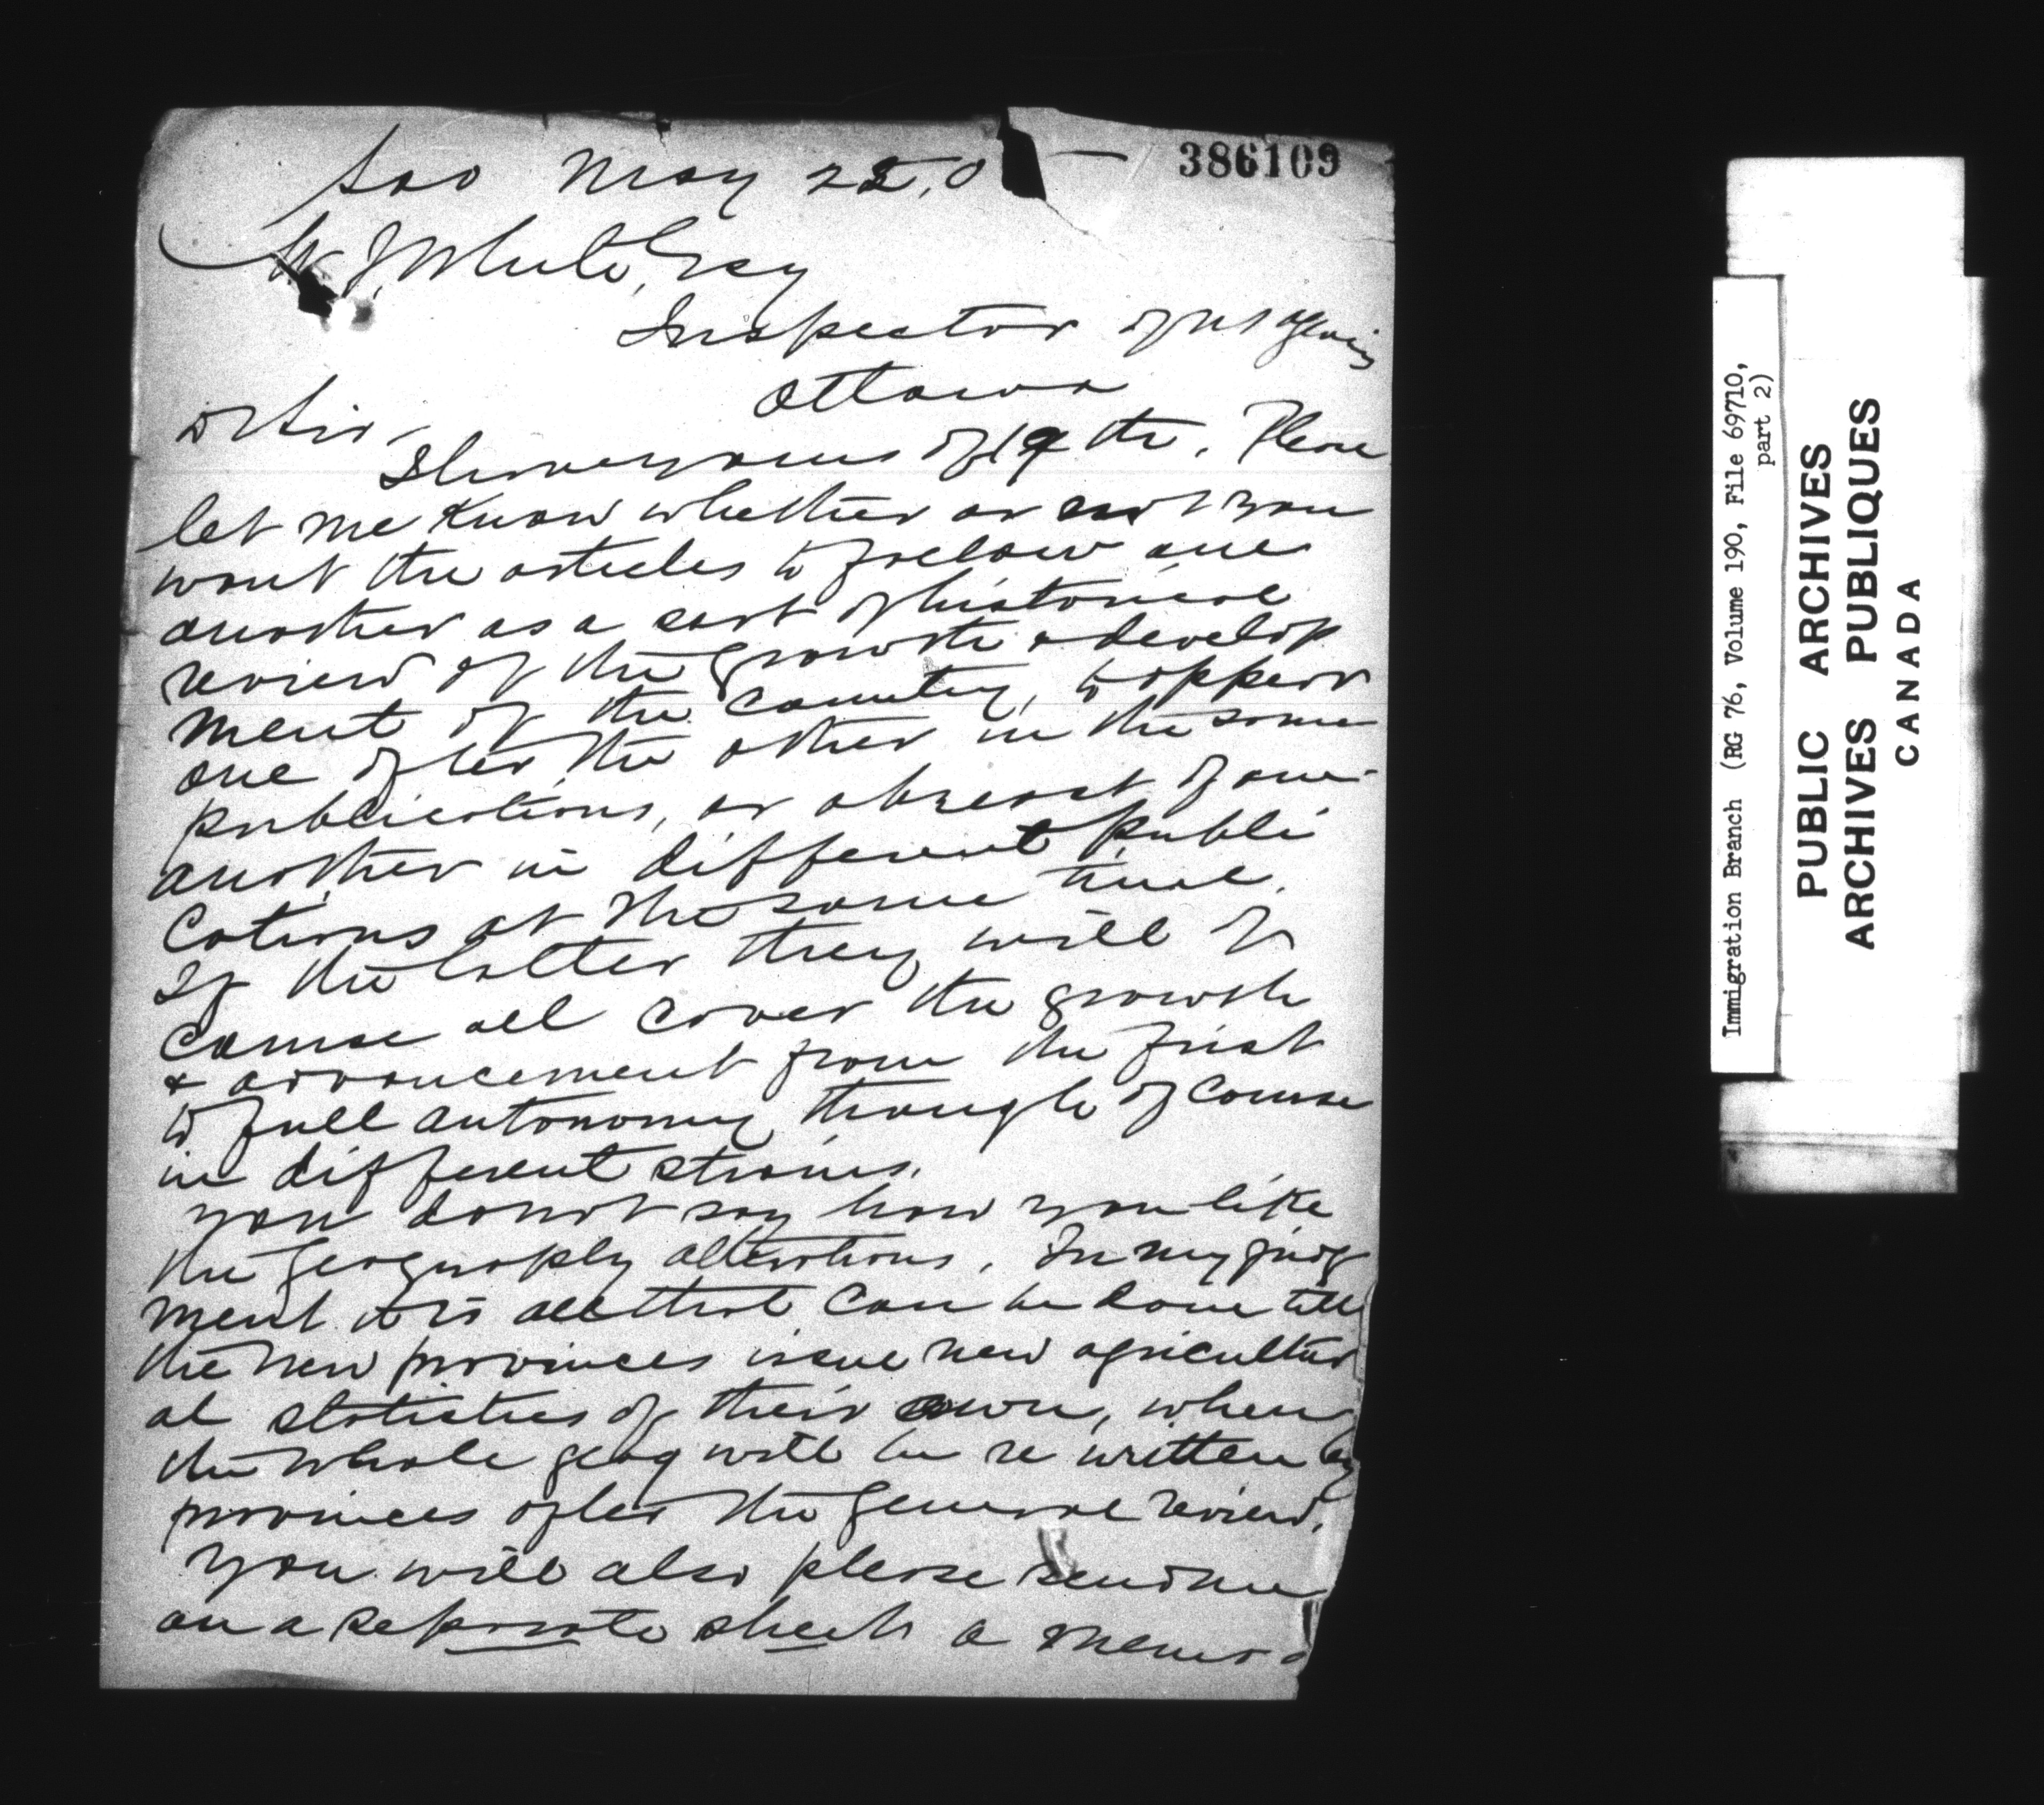 386109
Soo May 25, 0
W. J. White, Esq
Inspector of U S Agencies
Ottawa
D Sir,
I have yours of 19th. Please
let me know whether or not you
want the articles to follow one
another as a sort of historical
review of the growth & develop
ment of the country, to appear
one after the other in the same
publications, or abreast of one
another in different publi
cations at the same time.
If the latter they will of
course all cover the growth
& advancement from the first
to full autonomy though of course
in different strains.
You do not say how you like
the Geography alterations. In my judg
ment it is all that can be done till
the new provinces issue new agricultur
al statistics of their own, when
the whole geog will be re written by
provinces after the general review.
You will also please send me
on a separate sheet a memo
Immigration Branch (RG 76, Volume 190, File 69710,
part 2)
PUBLIC ARCHIVES
ARCHIVES PUBLIQUES
CANADA